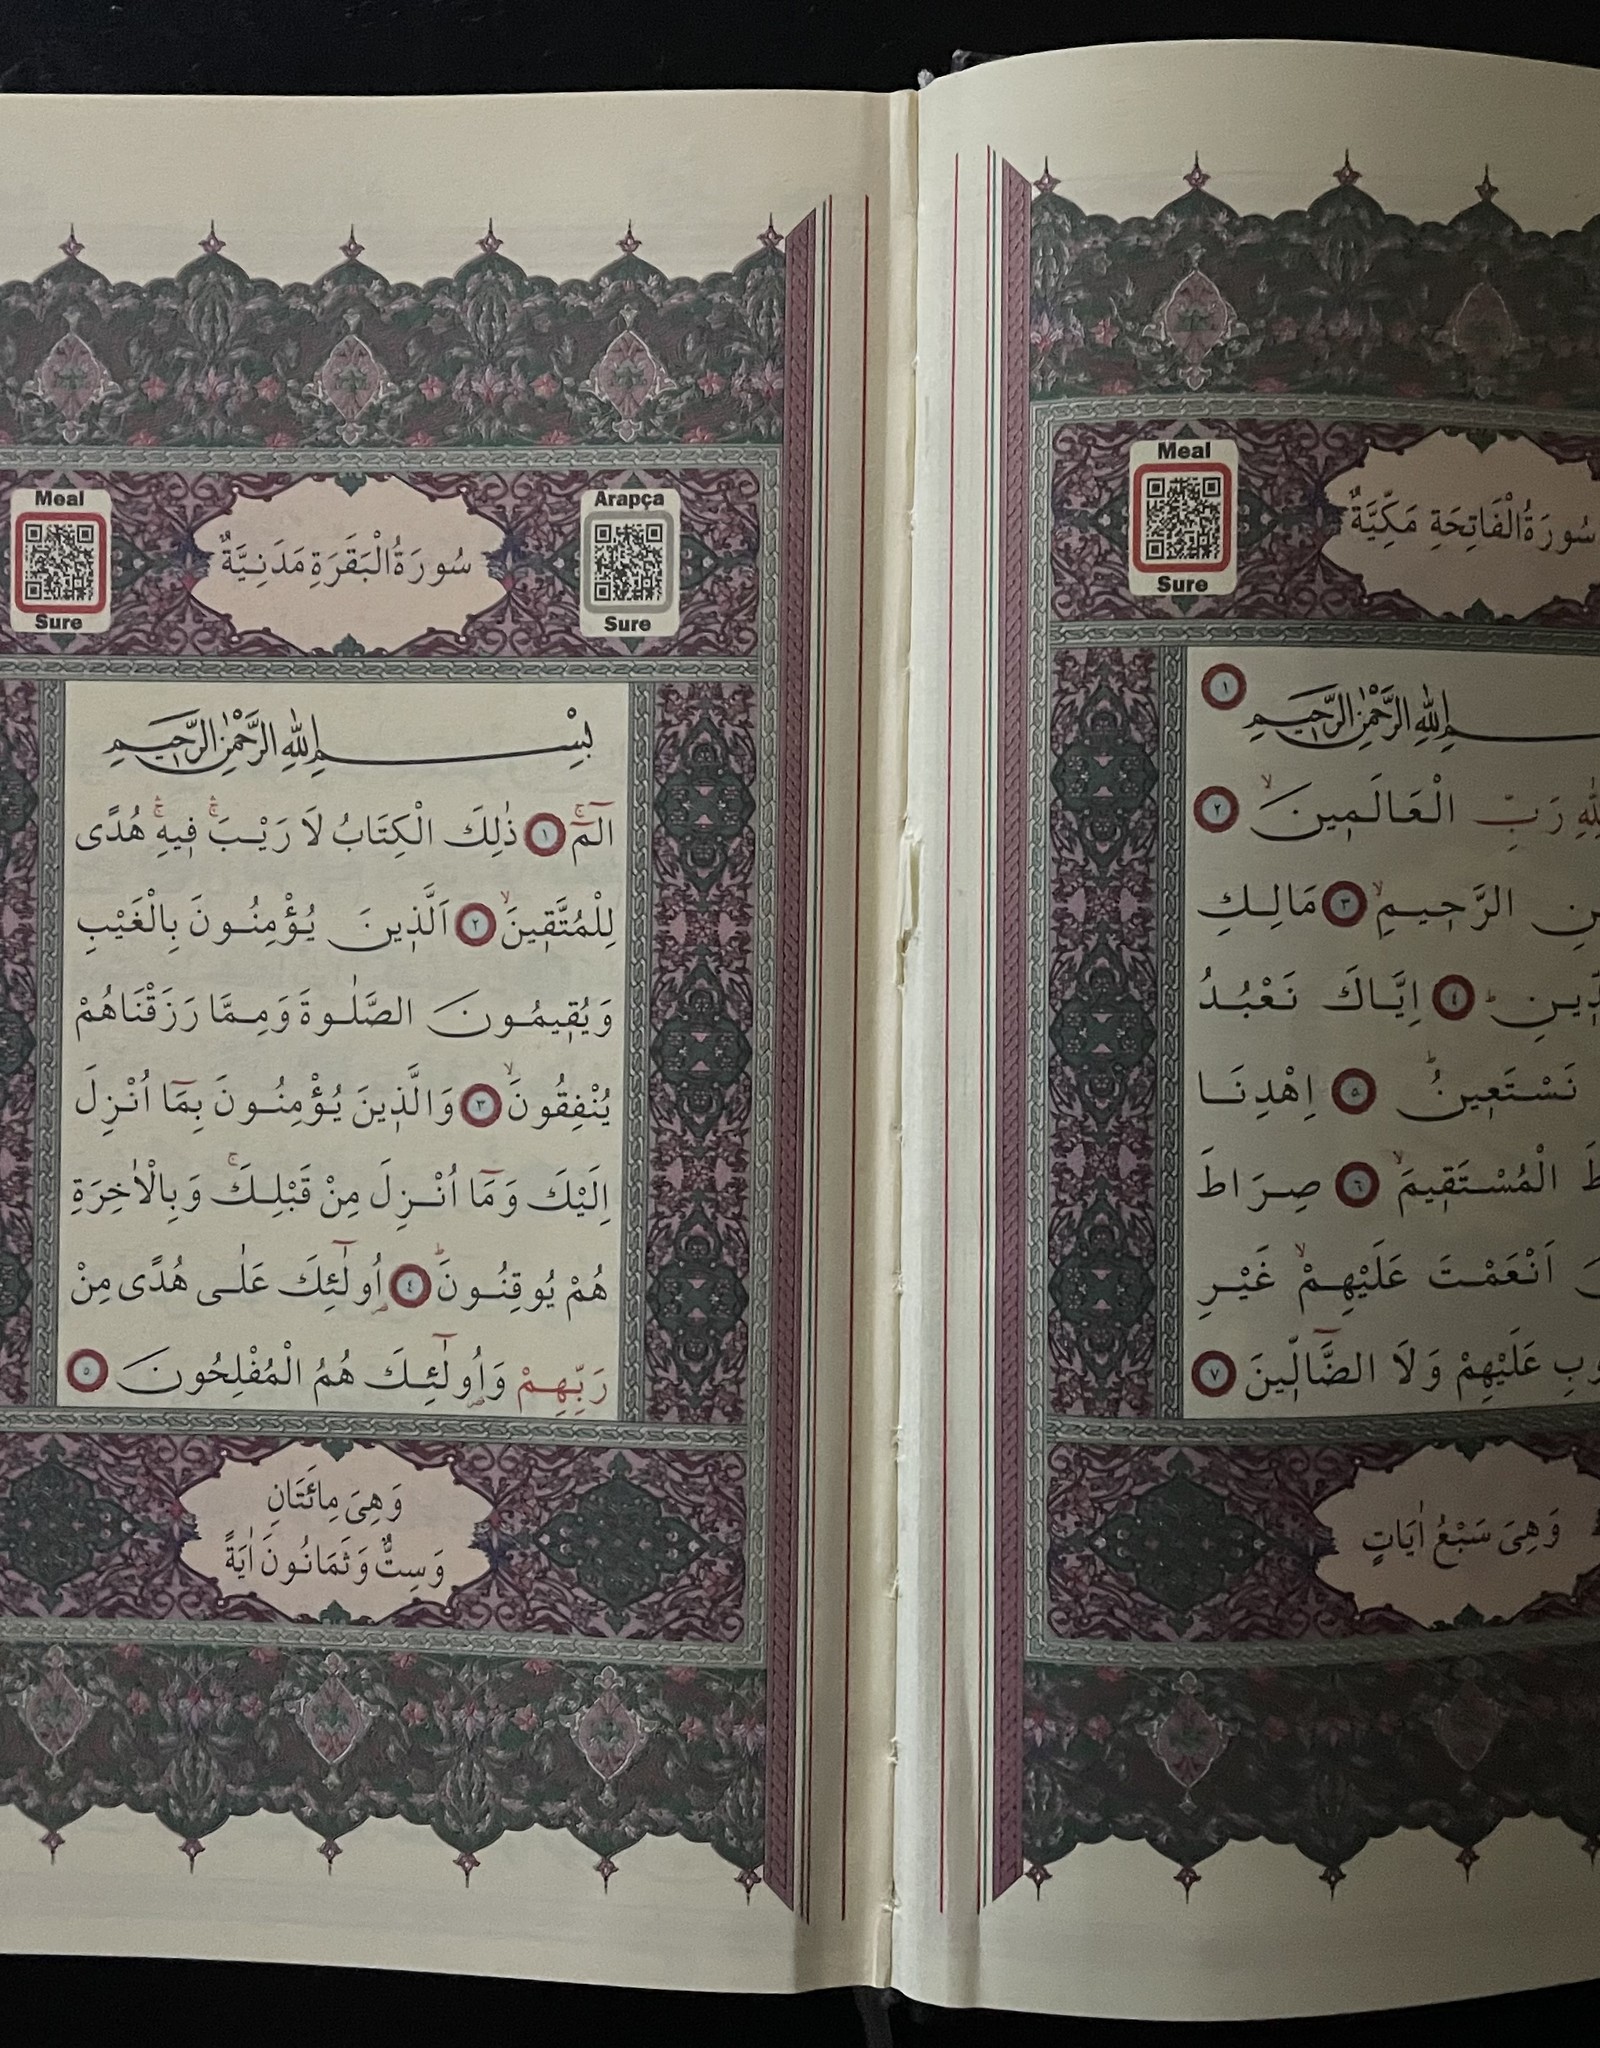 Meal
سُورَةُ الْفَاتِحَةِ مَكِّيَّةٌ
Sure
١
ـمِ اللّٰهِ الرَّحْمٰنِ الرَّحٖيمِ
رَبِّ الْعَالَمٖينَۙ ٢
الرَّحٖيمِۙ ٣ مَالِكِ
اِيَّاكَ نَعْبُدُ ٤
نَسْتَعٖينُؕ ٥ اِهْدِنَا
الْمُسْتَقٖيمَۙ ٦ صِرَاطَ
اَنْعَمْتَ عَلَيْهِمْۙ غَيْرِ
عَلَيْهِمْ وَلَا الضَّٓالّٖينَ ٧
وَهِيَ سَبْعُ اٰيَاتٍ
Arapça
Meal
سُورَةُ الْبَقَرَةِ مَدَنِيَّةٌ
Sure
Sure
بِسْمِ اللّٰهِ الرَّحْمٰنِ الرَّحٖيمِ
الٓمٓۚ ١ ذٰلِكَ الْكِتَابُ لَا رَيْبَۚۛ فٖيهِۚۛ هُدًى
لِلْمُتَّقٖينَۙ ٢ اَلَّذٖينَ يُؤْمِنُونَ بِالْغَيْبِ
وَيُقٖيمُونَ الصَّلٰوةَ وَمِمَّا رَزَقْنَاهُمْ
يُنْفِقُونَۙ ٣ وَالَّذٖينَ يُؤْمِنُونَ بِمَٓا اُنْزِلَ
اِلَيْكَ وَمَٓا اُنْزِلَ مِنْ قَبْلِكَۚ وَبِالْاٰخِرَةِ
هُمْ يُوقِنُونَؕ ٤ اُو۬لٰٓئِكَ عَلٰى هُدًى مِنْ
رَبِّهِمْ وَاُو۬لٰٓئِكَ هُمُ الْمُفْلِحُونَ ٥
وَهِيَ مِائَتَانِ
وَسِتٌّ وَثَمَانُونَ اٰيَةً